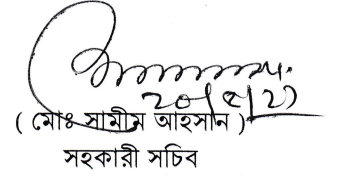 ২০/৫/২১
( মোঃ সামীম আহসান )
সহকারী সচিব